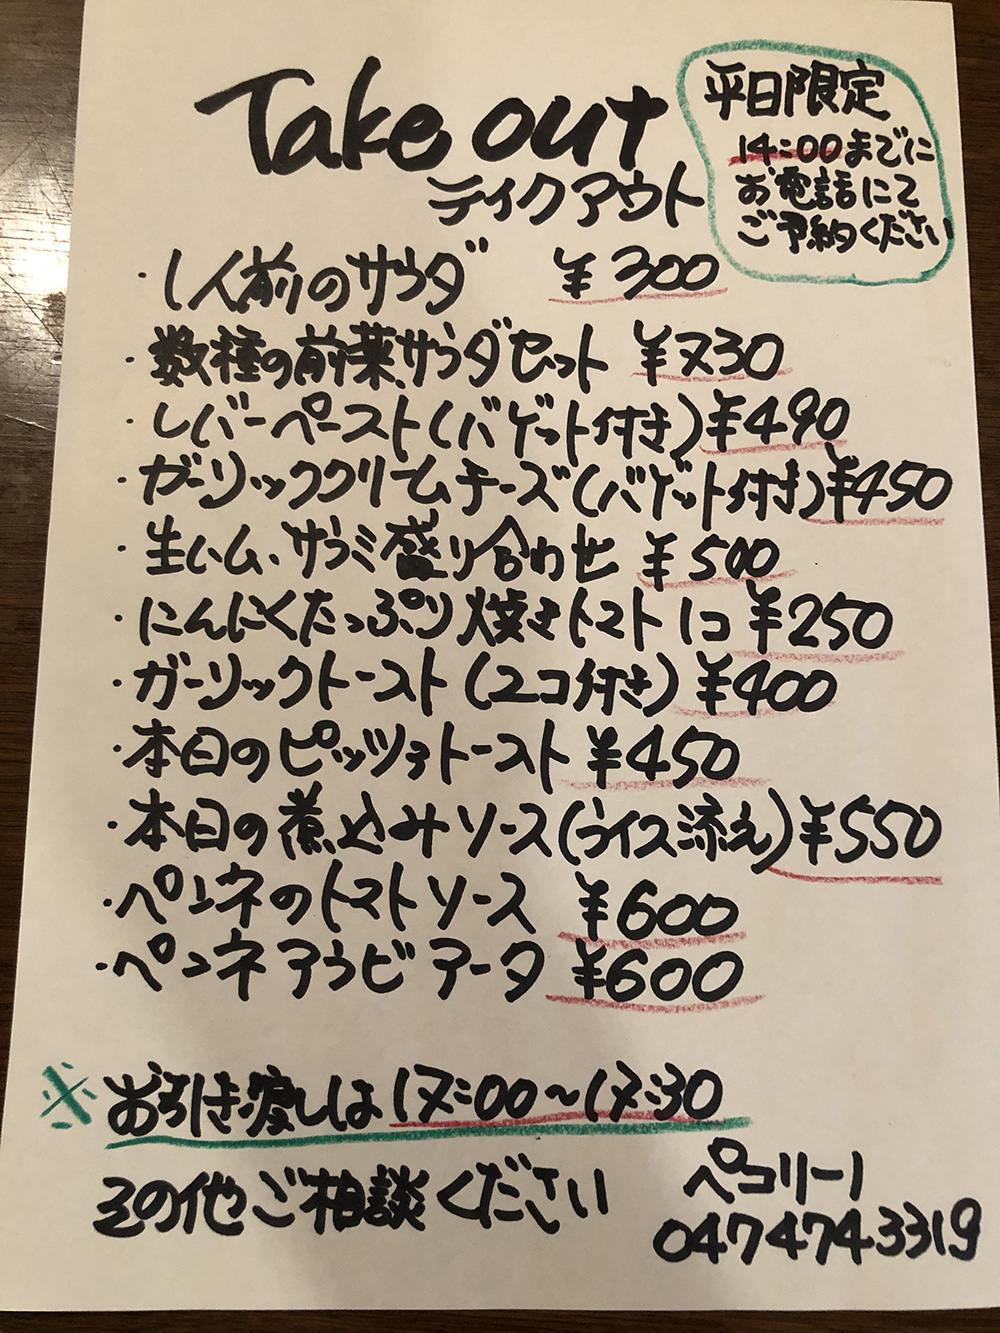 Take out
ティクアウト
平日限定
14:00までに
お電話にて
ご予約ください
・1人前のサラダ ¥300
・数種の前菜サラダセット ¥730
・レバーペースト(バゲット付き)¥490
・ガーリッククリームチーズ(バゲット付き)¥450
・生ハム、サラミ盛り合わせ ¥500
・にんにくたっぷり焼きトマト1コ ¥250
・ガーリックトースト(2コ付き) ¥400
・本日のピッツァトースト ¥450
・本日の煮込みソース(ライス添え)¥550
・ペンネのトマトソース ¥600
・ペンネアラビアータ ¥600
※お引き渡しは17:00~17:30
その他ご相談ください
ペコリーノ
0474743319